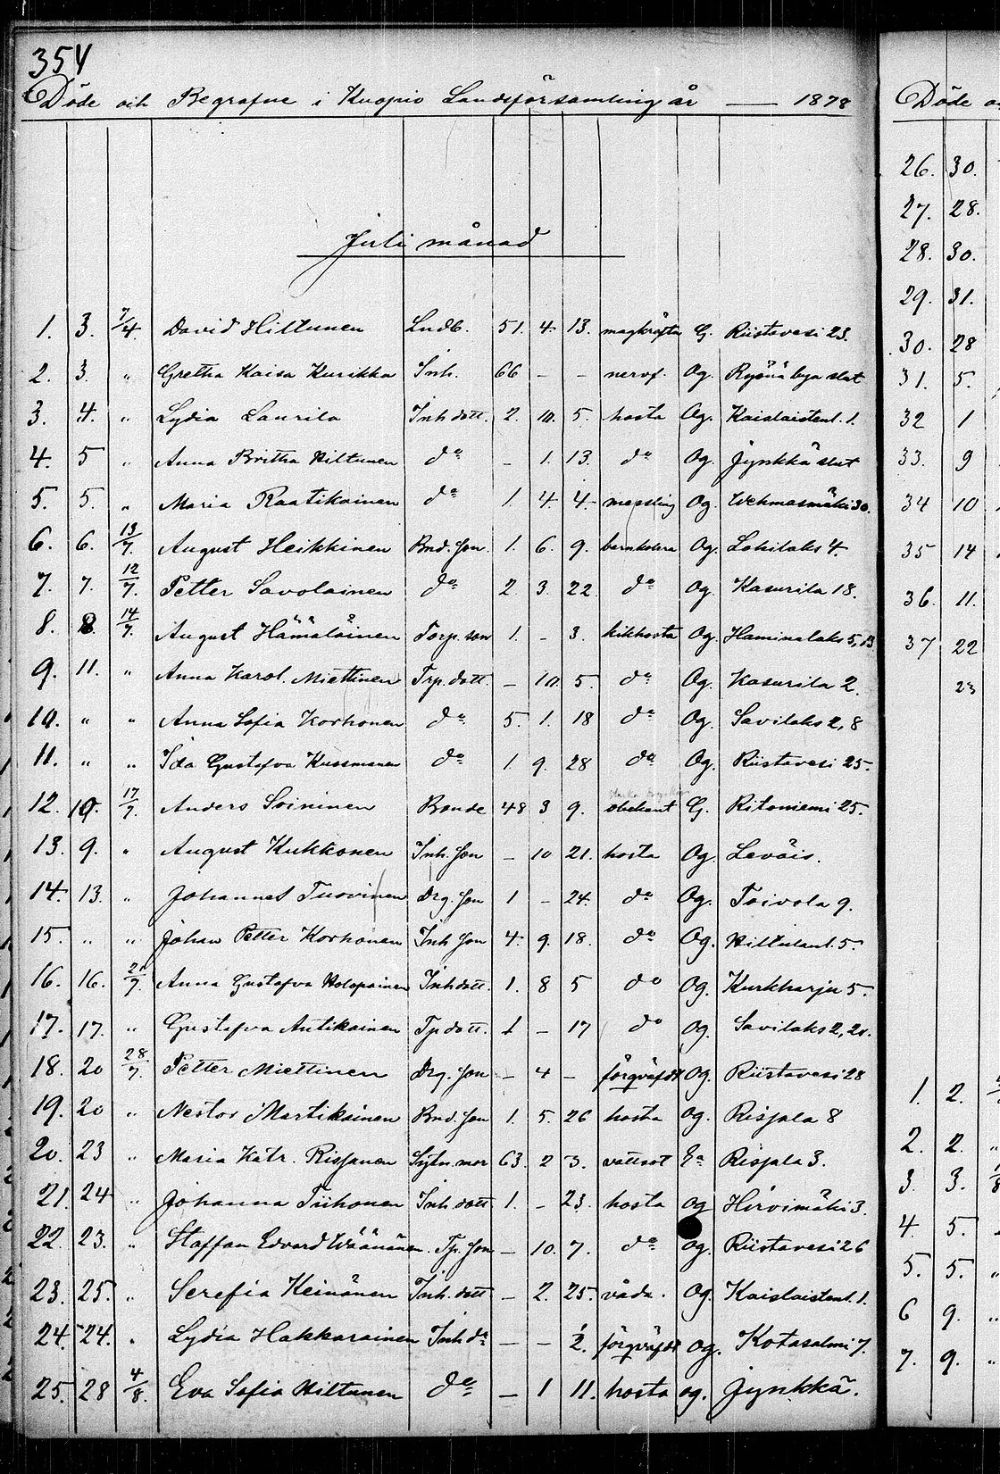 354
Döde och Begrafne i Kuopio Landsförsamling år — 1878
Juli månad
1. 3. 7/4. David Hiltunen Lndb. 51. 4. 13. magkräfta G. Riistavesi 23.
2. 3. " Gretha Kaisa Kurikka Inh. 66 - - nervf. Og. Rysnä bya slut
3. 4. " Lydia Laurila Inh dott. 2. 10. 5. hosta Og. Kaislaistenl. 1.
4. 5 " Anna Britha Hiltunen do - 1. 13. do Og. Jynkkä slut
5. 5. " Maria Raatikainen do 1. 4. 4. messling Og. Wehmasmäki 30.
6. 6. 13/7. August Heikkinen Bnd. Son. 1. 6. 9. barnkolera Og. Lohilaks 4.
7. 7. 12/7. Petter Savolainen do 2 3. 22 do Og. Kasurila 18.
8. 8. 14/7. August Hämäläinen Torp. son 1. - 3. kikhosta Og. Haminalaks 5, 13
9. 11. " Anna Karol. Miettinen Trp. dott. - 10. 5. do Og. Kasurila 2.
10. " " Anna Sofia Korhonen do 5. 1. 18 do Og. Savilaks 2, 8
11. " " Ida Gustafva Kussmanen do 1 9. 28 do Og. Riistavesi 25.
12. 10. 17/7. Anders Soininen Bonde 48 3 9. G. Ritoniemi 25.
13. 9. " August Kukkonen Inh. Son - 10 21. hosta Og. Leväis.
14. 13. " Johannes Tuovinen Drg. Son 1 - 24. do Og. Toivola 9.
15. " " Johan Petter Korhonen Inh Son 4. 9. 18. do Og. Hiltulanl. 5.
16. 16. 21/7. Anna Gustafva Holopainen Inh dott. 1. 8 5 do Og. Kurkharju 5.
17. 17. " Gustafva Antikainen Tp dott. 1 - 17 do Og. Savilaks 2, 20.
18. 20 28/7. Petter Miettinen Drg. Son - 4 - förqväfdt Og. Riistavesi 28
19. 20 " Nestor Martikainen Bnd. Son 1. 5. 26 hosta Og. Risjala 8
20. 23 " Maria Katr. Rissanen Sytn. mor 63. 2 3. vattsot Ea Risjala 3.
21. 24 " Johanna Tiihonen Inh. dott 1. - 23. hosta og Hirvimäki 3.
22. 23. " Staffan Edvard Wäänänen. Tp. Son - 10. 7. do og. Riistavesi 26
23. 25. " Serefia Keinänen Inh. dott - 2. 25. våda. Og. Kaislaistenl. 1.
24. 24. " Lydia Hakkarainen Inh do - - 1/2. förqväfdt og. Kotasalmi 7.
25. 28 4/8. Eva Sofia Hiltunen do - 1 11. hosta og. Jynkkä.
Döde
26. 30.
27. 28.
28. 30.
29. 31.
30. 28
31. 5.
32 1
33. 9
34 10
35 14
36. 11.
37 22
23
1. 2.
2. 2. "
3 3.
4. 5.
5. 5. "
6 9. "
7. 9. "